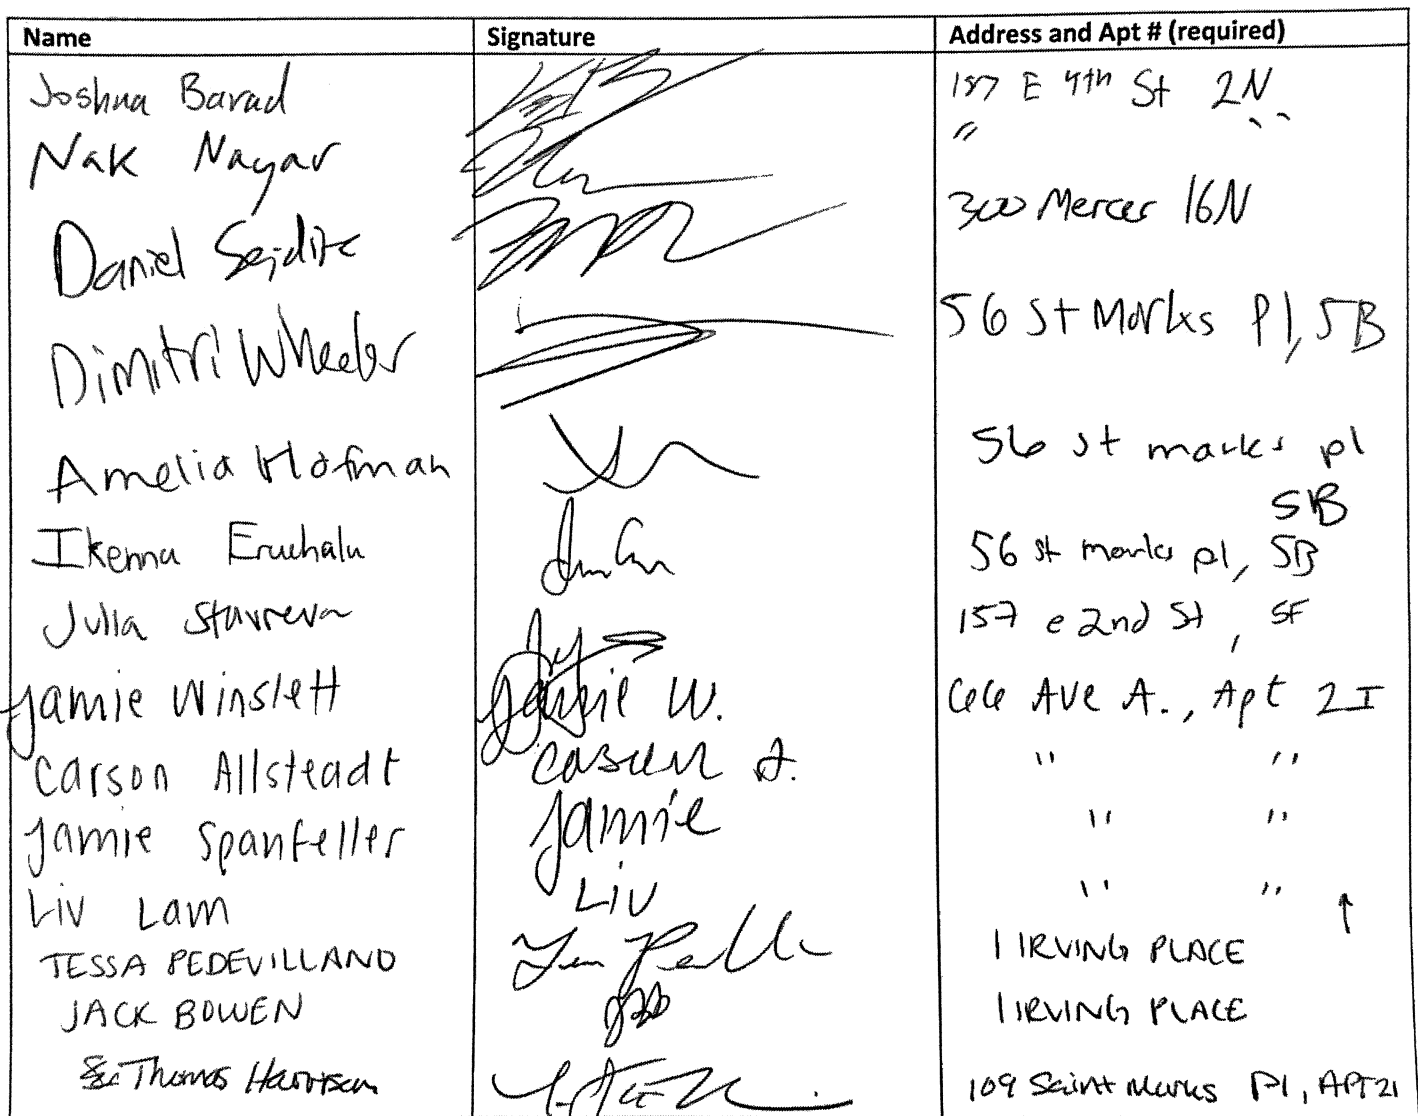 Name Signature Address and Apt # (required)
Joshua Barad 157 E 4th St 2N
Nak Nayar " "
Daniel 300 Mercer 16N
Dimitri Wheeler 56 St Marks Pl, 5B
Amelia Hofman 56 st marks pl
5B
Ikenna Eruchalu 56 st marks pl, 5B
Julia Stavreva 157 e 2nd St, 5F
Jamie Winslett Jamie W. Ave A., Apt 2I
Carson Allsteadt Carson A. " "
Jamie Spanfeller Jamie " "
Liv Lam Liv " "
TESSA PEDEVILLANO 1 IRVING PLACE
JACK BOWEN 1 IRVING PLACE
Thomas Harrison 109 Saint Marks Pl, APT 21